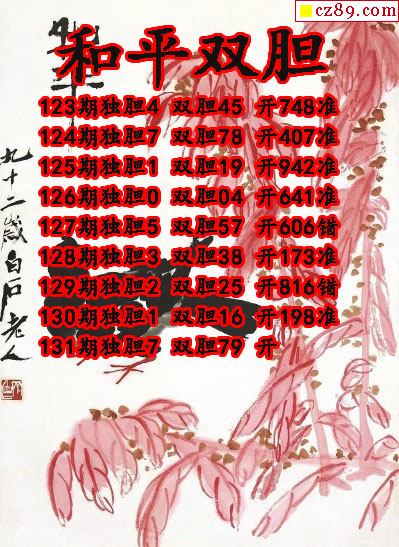 cz89.com
和平
和平双胆
123期独胆4 双胆45 开748准
124期独胆7 双胆78 开407准
125期独胆1 双胆19 开942准
126期独胆0 双胆04 开641准
127期独胆5 双胆57 开606错
128期独胆3 双胆38 开173准
129期独胆2 双胆25 开816错
130期独胆1 双胆16 开198准
131期独胆7 双胆79 开
九十二岁白石老人